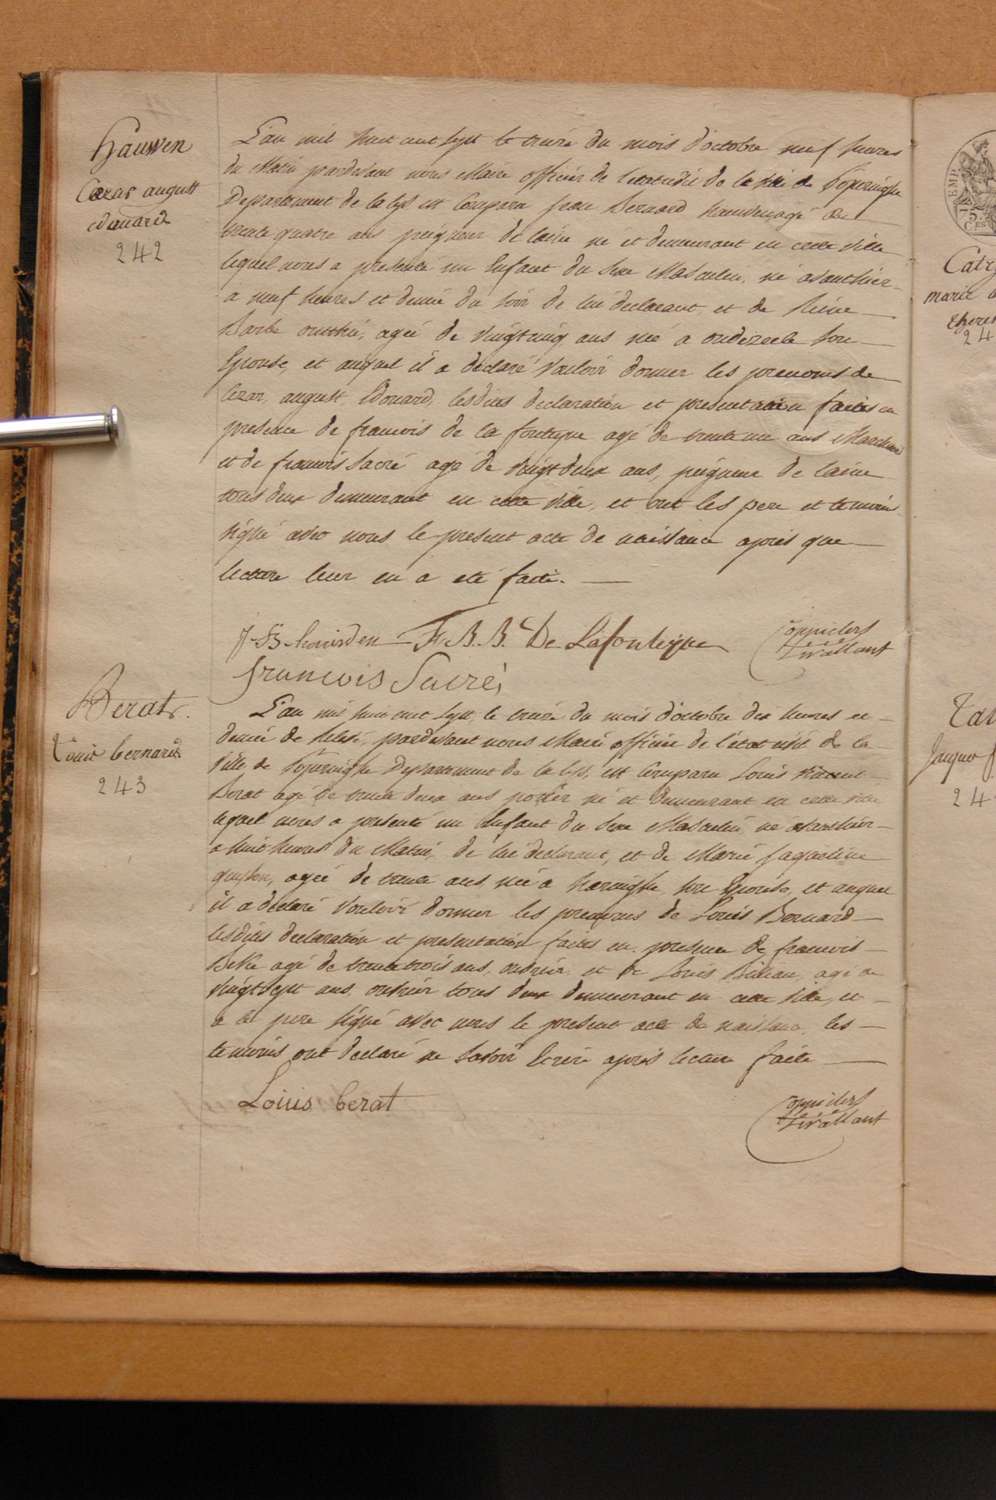 hauwen
Cezar august
edouard
242
L'an mil huit cent sept le treize du mois d'octobre neuf heures
du Matin pardevant nous Maire officier de l'etat civil de la ville de Poperinghe
Departement de la Lys est Comparu jean Bernard agé de
trente quatre ans peigneur de laine né et demeurant en cette ville
lequel nous a presenté un Enfant du sexe Masculin, né avanthier
a neuf heures et demie du soir de lui declarant et de
Barbe agée de vingt cinq ans née a son
Epouse, et auquel il a declaré vouloir donner les prenoms de
Cezar, august, Edouard, lesdites declaration et presentation faites en
presence de francois de la fonteyne agé de trente un ans
et de francois Sacré agé de vingt deux ans, peigneur de laine
tous deux demeurant en cette ville, et ont les pere et temoins
signé avec nous le present acte de naissance après que
lecture leur en a eté faite.
F. B. B. De Lafonteyne
françois Sacré
Berat
Louis bernard
243
L'an mil huit cent sept, le treize du mois d'octobre dix heures et
demie de pardevant nous Maire officier de l'état civil de la
Ville de Poperinghe Departement de la Lys, est Comparu Louis Vincent
Berat agé de trente deux ans né et demeurant en cette ville
lequel nous a presenté un Enfant du sexe Masculin né avanthier
a huit heures du Matin, de lui declarant, et de Marie jaqueline
agée de trente ans née a son Epouse, et auquel
il a declaré vouloir donner les prenoms de Louis Bernard
lesdites declaration et presentation faites en presence de francois
agé de trente trois ans, ouvrier et de Louis agé de
vingt sept ans, ouvrier tous deux demeurant en cette ville, et
a le pere signé avec nous le present acte de naissance, les
temoins ont declaré ne savoir Ecrire après lecture faite
Louis berat